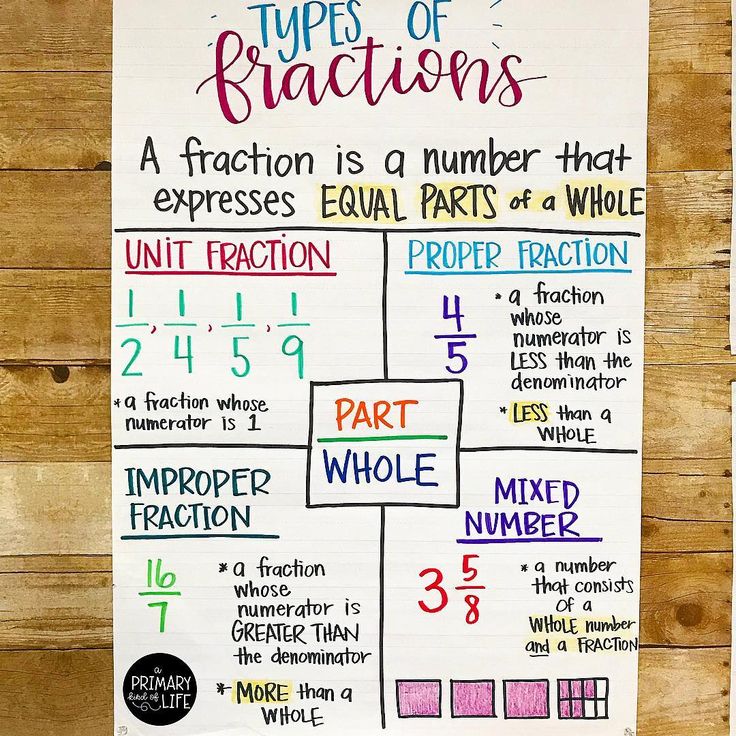 TYPES OF
fractions
A fraction is a number that
expresses EQUAL PARTS of a WHOLE
UNIT FRACTION
1/2, 1/4, 1/5, 1/9
* a fraction whose
numerator is 1
PROPER FRACTION
4/5
* a fraction
whose
numerator is
LESS than the
denominator
* LESS than a
WHOLE
PART
WHOLE
IMPROPER
FRACTION
16/7
* a fraction
whose
numerator is
GREATER THAN
the denominator
* MORE than a
WHOLE
MIXED
NUMBER
3 5/8
* a number
that consists
of a
WHOLE number
and a FRACTION
a
PRIMARY
kind of
LIFE